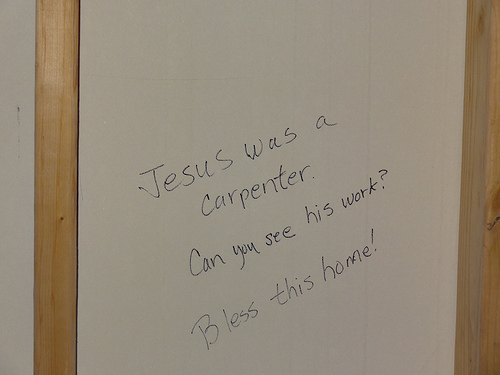 Jesus was a
carpenter.
Can you see his work?
Bless this home!